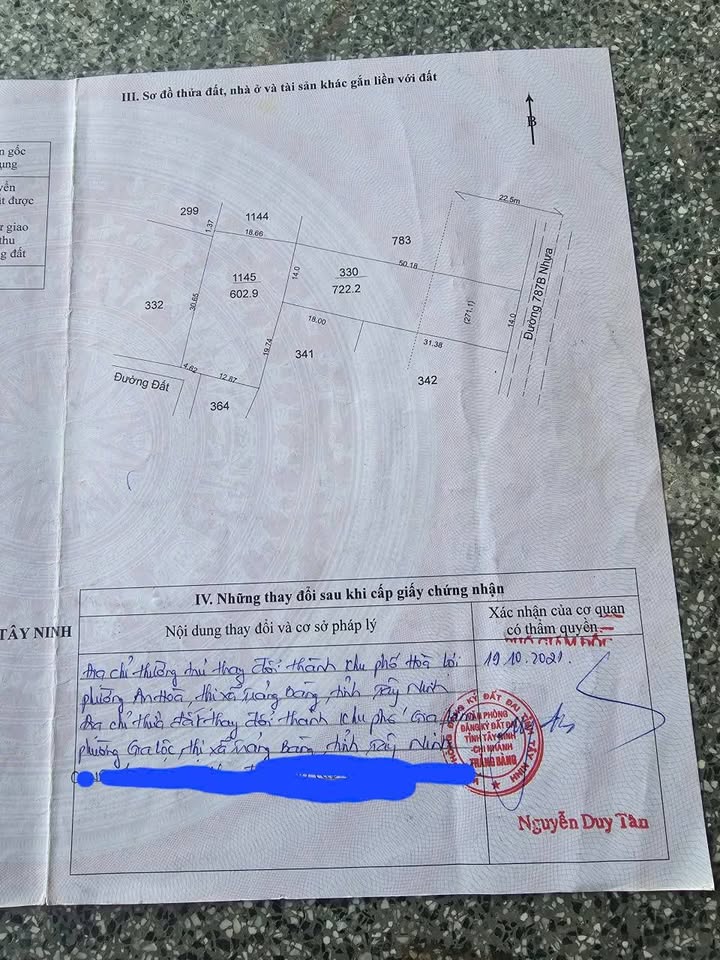 III. Sơ đồ thửa đất, nhà ở và tài sản khác gắn liền với đất
B
n gốc
ụng
yển
ất được
giao
thu
g đất
299
1144
1.37
18.66
783
22.5m
50.18
1145
602.9
14.0
330
722.2
332
30.65
(271.1)
14.0
Đường 787B Nhựa
18.00
19.74
341
31.38
342
4.62
12.87
Đường Đất
364
TÂY NINH
IV. Những thay đổi sau khi cấp giấy chứng nhận
Nội dung thay đổi và cơ sở pháp lý
Xác nhận của cơ quan
có thẩm quyền
PHÓ GIÁM ĐỐC
Địa chỉ thường trú thay đổi thành khu phố Hoà Lợi
phường An Hoà, thị xã Trảng Bàng, tỉnh Tây Ninh
Địa chỉ thửa đất thay đổi thành khu phố Gia
phường Gia Lộc, thị xã Trảng Bàng, tỉnh Tây Ninh
19.10.2021.
VĂN PHÒNG
ĐĂNG KÝ ĐẤT ĐAI
TỈNH TÂY NINH
CHI NHÁNH
TRẢNG BÀNG
Nguyễn Duy Tân